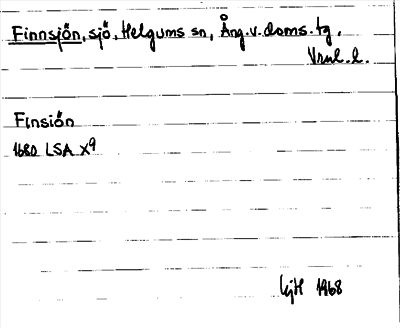 Finnsjön, sjö, Helgums sn, Ång.v.doms.tg.
Vnrl. l.
Finsiön
1680 LSA X9
LjH 1968